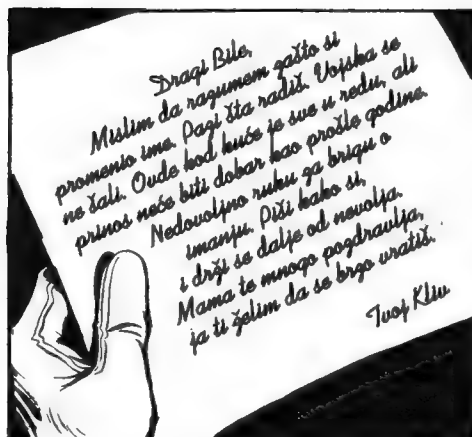 Dragi Bile,
Mislim da razumem zašto si
promenio ime. Pazi šta radiš. Vojska se
ne šali. Ovde kod kuće je sve u redu, ali
prinos neće biti dobar kao prošle godine.
Nedovoljno ruku za brigu o
imanju. Piši kako si,
i drži se dalje od nevolja.
Mama te mnogo pozdravlja,
ja ti želim da se brzo vratiš.
Tvoj Kliv